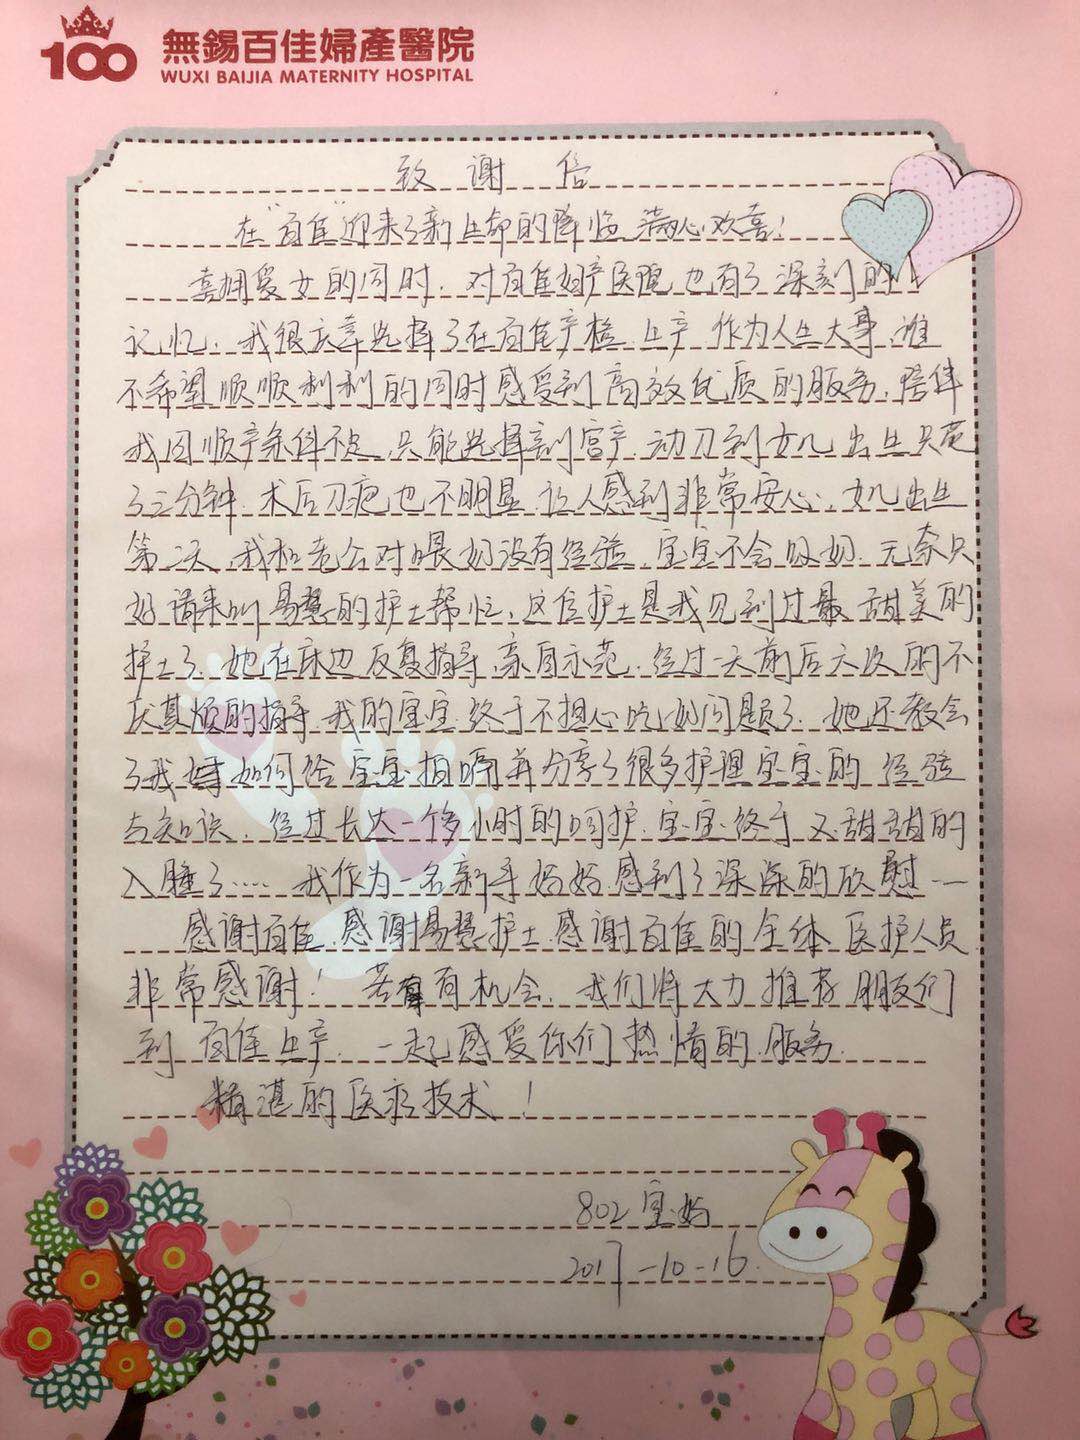 100
無錫百佳婦產醫院
WUXI BAIJIA MATERNITY HOSPITAL
致谢信
在"百佳"迎来了新生命的降临,满心欢喜!
喜拥爱女的同时,对百佳妇产医院也有了深刻的
记忆,我很庆幸选择了在百佳产检、生产,作为人生大事,谁
不希望顺顺利利的同时感受到高效优质的服务、陪伴
我因顺产条件不足,只能选择剖宫产,动刀到女儿出生只花
了三分钟,术后刀疤也不明显,让人感到非常安心,女儿出生
第二天,我和老公对喂奶没有经验,宝宝不会吸奶,无奈只
好请来叫易慧的护士帮忙,这位护士是我见到过最甜美的
护士了,她在床边反复指导,亲自示范,经过一天前后六次的不
厌其烦的指导,我的宝宝终于不担心吃奶问题了,她还教会
了我如何给宝宝拍嗝并分享了很多护理宝宝的经验
与知识,经过长达一个多小时的呵护,宝宝终于又甜甜的
入睡了……我作为一名新手妈妈感到了深深的欣慰……
感谢百佳,感谢易慧护士,感谢百佳的全体医护人员
非常感谢!若有机会,我们将大力推荐朋友们
到百佳生产,一起感受你们热情的服务,
精湛的医疗技术!
802宝妈
2017-10-16.